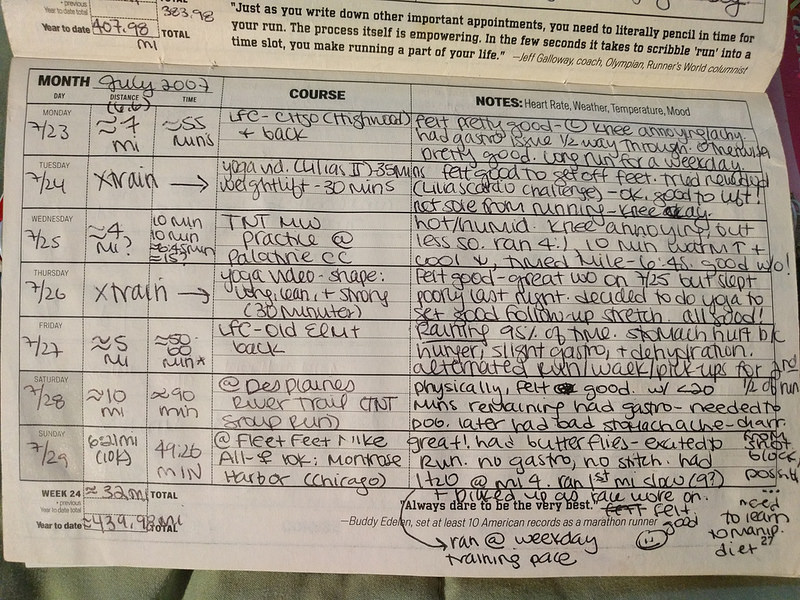 previous TOTAL
383.98
Year to date 407.98 TOTAL
mi
"Just as you write down other important appointments, you need to literally pencil in time for
your run. The process itself is empowering. In the few seconds it takes to scribble 'run' into a
time slot, you make running a part of your life." —Jeff Galloway, coach, Olympian, Runner's World columnist
MONTH July 2007
DAY DISTANCE TIME COURSE NOTES: Heart Rate, Weather, Temperature, Mood
(6.6)
MONDAY
7/23 ≈7 mi ≈55 mins
LFC - (Highwood)
+ back
felt pretty good - (L) knee annoying/achy.
had gastro issue 1/2 way through. otherwise
pretty good. long run for a weekday.
TUESDAY
7/24 xtrain →
yoga vid. (Lilias II) - 35mins
weightlift - 30 mins
felt good to get off feet. tried new dvd
challenge) - ok. good to lift!
not sore from running - knee okay.
WEDNESDAY
7/25 ≈4 mi?
10 min
10 min
≈6:45 min
≈15?
TNT MW
practice @
Palatine CC
hot/humid. knee annoying, but
less so. ran 4.) 10 min warm ↑ +
cool ↓, timed mile - 6:45. good w/o!
THURSDAY
7/26 xtrain →
yoga video - shape:
long, lean, + strong
(30 minuter)
felt good - great wo on 7/25 but slept
poorly last night. decided to do yoga to
get good follow-up stretch. all good!
FRIDAY
7/27 ≈5 mi ≈50-60 min*
LFC - Old Elm +
back
raining 95% of time. stomach hurt b/c
hunger, slight gastro, + dehydration.
alternated run/walk/pick-ups for 2nd
1/2 of run
SATURDAY
7/28 ≈10 mi ≈90 min
@ Des Plaines
River Trail (TNT
group run)
physically, felt good. w/ <20
mins remaining had gastro - needed to
poo. later had bad stomachache - char.
from shot block, possibly
...need to learn to manip. diet
SUNDAY
7/29 6.21mi (10K) 49:26 MIN
@ Fleet Feet Nike
All-♀ 10K: Montrose
Harbor (Chicago)
great! had butterflies - excited to
run. no gastro, no stitch. had
1 H2O @ mi 4. ran 1st mi slow (9?)
+ picked up as race wore on.
felt good
ran @ weekday
training pace
WEEK 24 ≈32mi TOTAL
+ previous
Year to date ≈439.98mi TOTAL
"Always dare to be the very best."
—Buddy Edelen, set at least 10 American records as a marathon runner
27